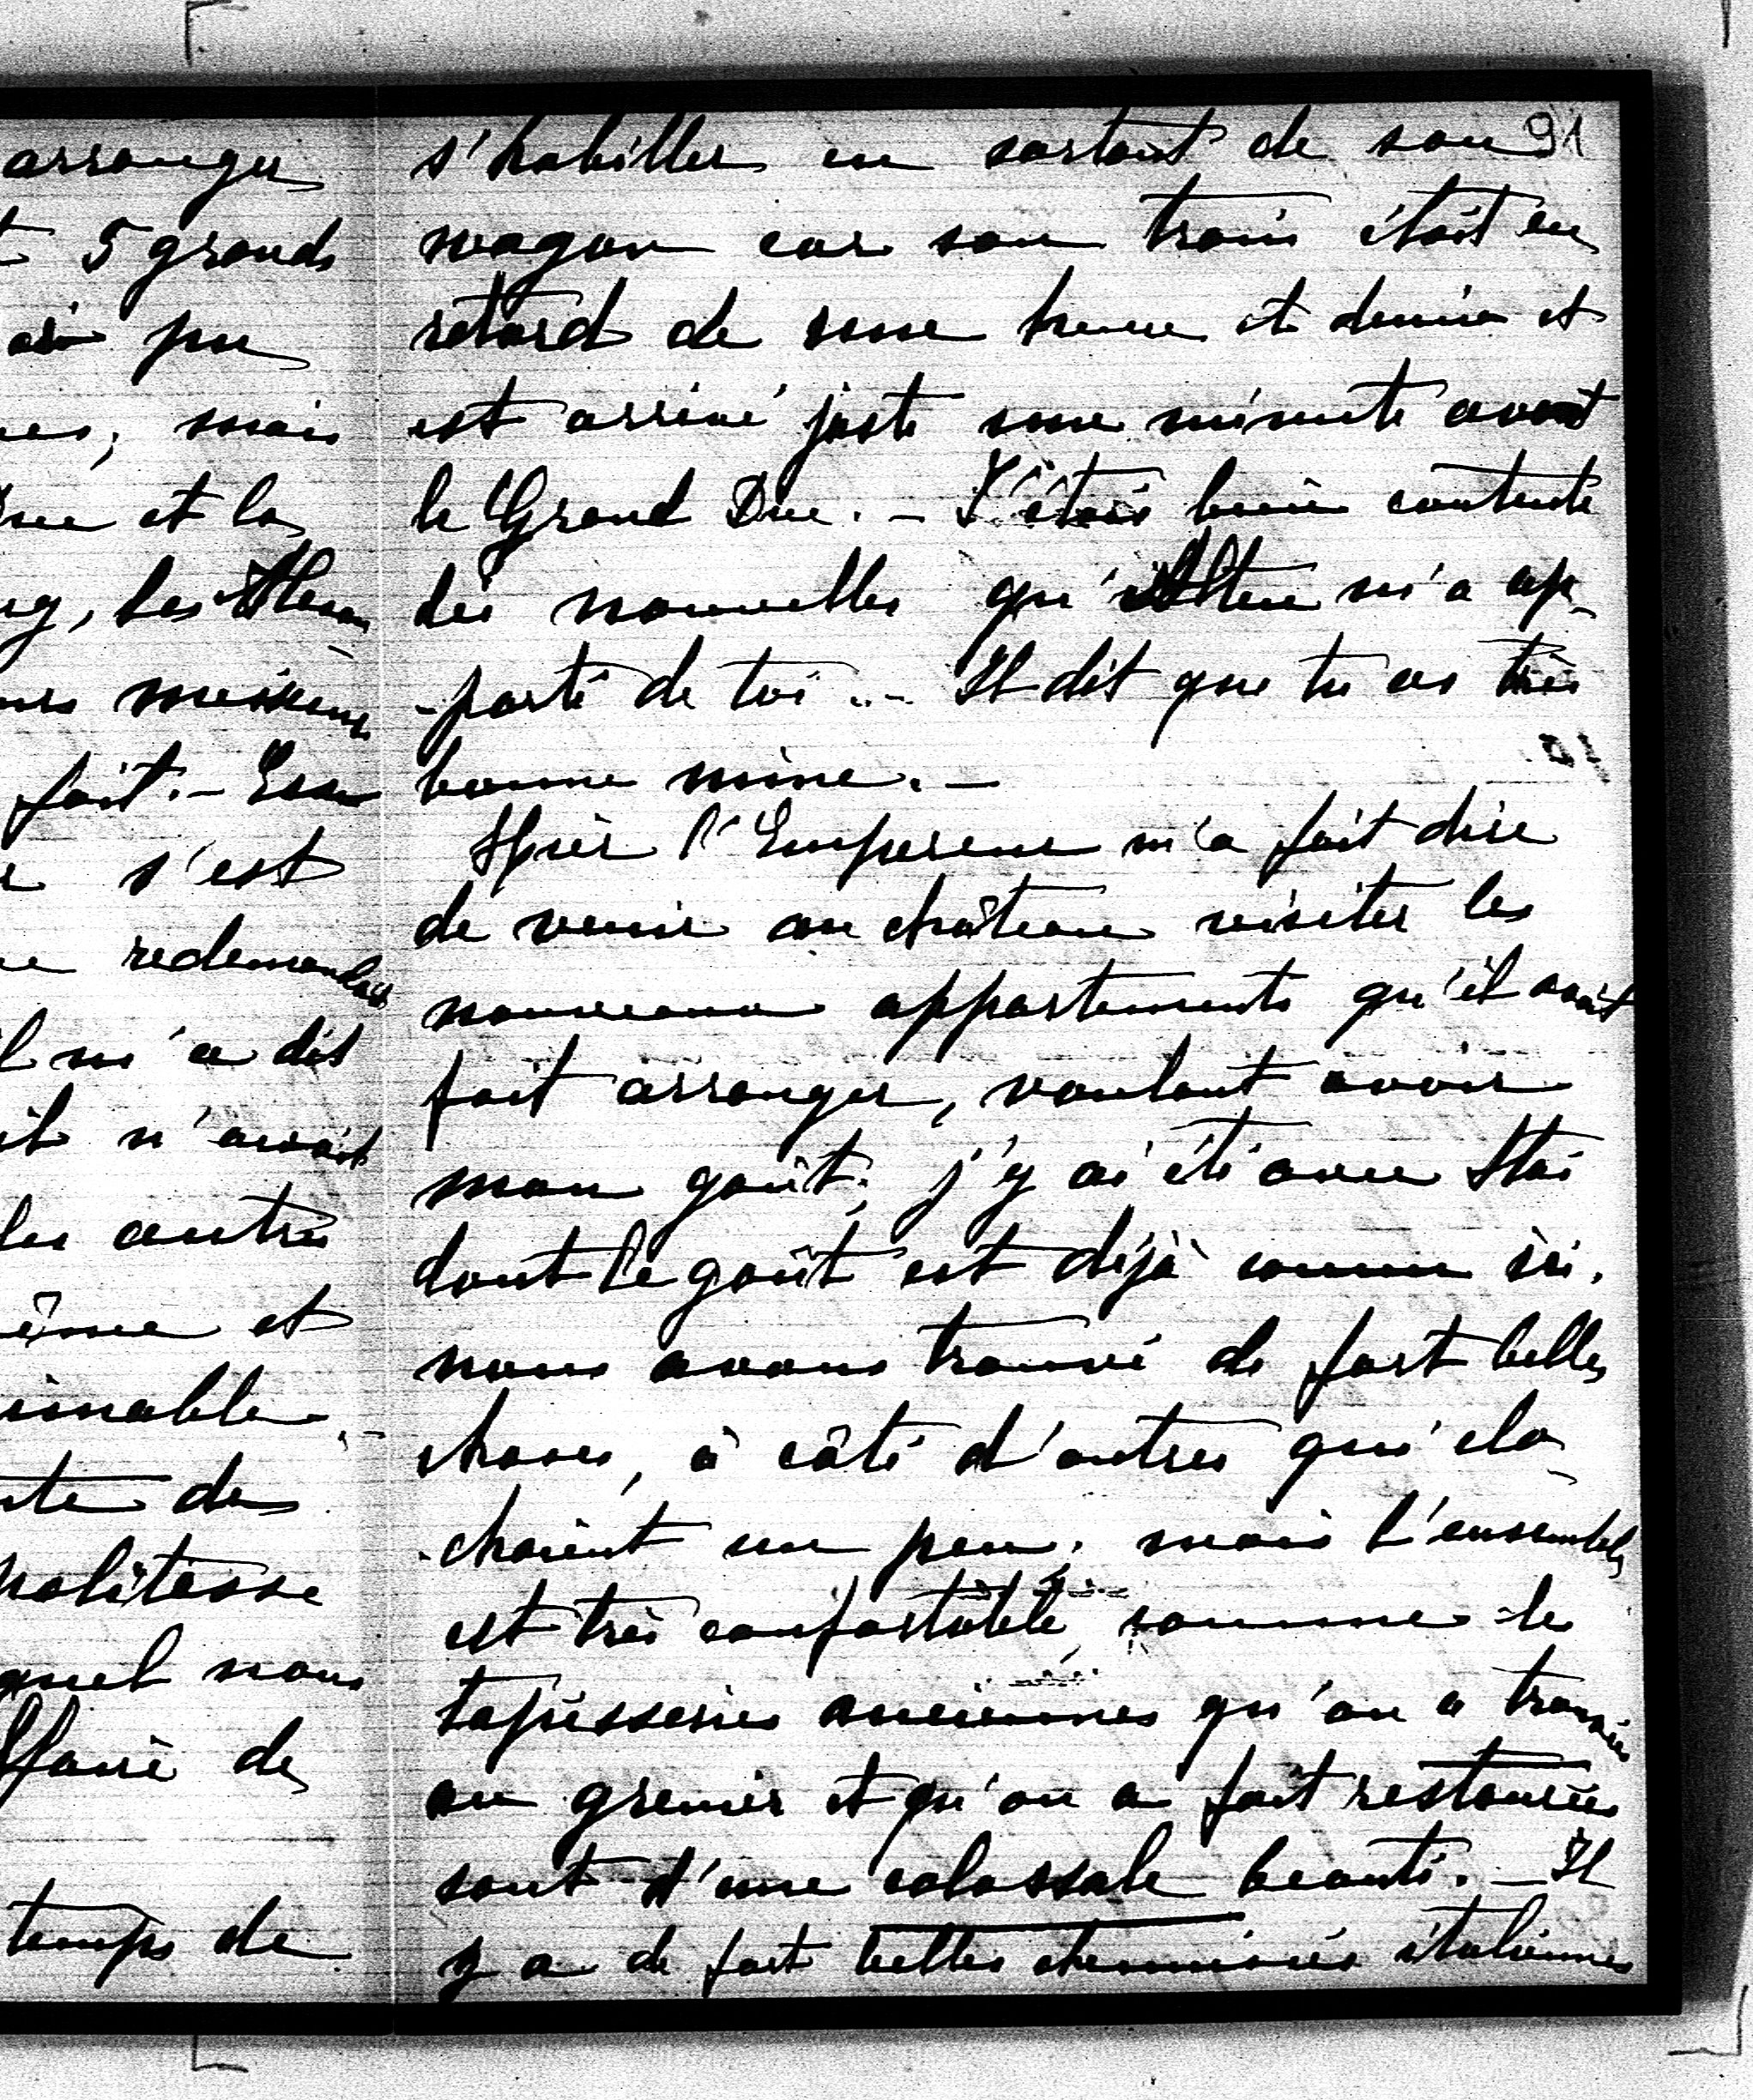 arranger
5 grands
pu
mais
et la
mg, les
fait. – Ess
s'est
redemandait
il m'a dit
il n'avait
les autres
ême et
imable. –
nte de
politesse
quel nous
ffaire de
temps de
91
s'habiller en sortant de son
wagon car son train était en
retard de une heure et demie et
est arrivé juste une minute avant
le Grand Duc. – J'étais bien contente
des nouvelles qu' m'a ap-
-porté de toi. – Il dit que tu as très
bonne mine. –
Hier l'Empereur m'a fait dire
de venir au château visiter les
nouveaux appartements qu'il avait
fait arranger, voulant avoir
mon goût; j'y ai été avec
dont le goût est déjà connu ici.
nous avons trouvé de fort belles
choses, à côté d'autres qui clo-
-chaient un peu; mais l'ensemble
est très confortable, comme les
tapisseries anciennes qu'on a trouvées
au grenier et qu'on a fait restaurées
sont d'une colossale beauté. – Il
y a de fort belles cheminées italiennes